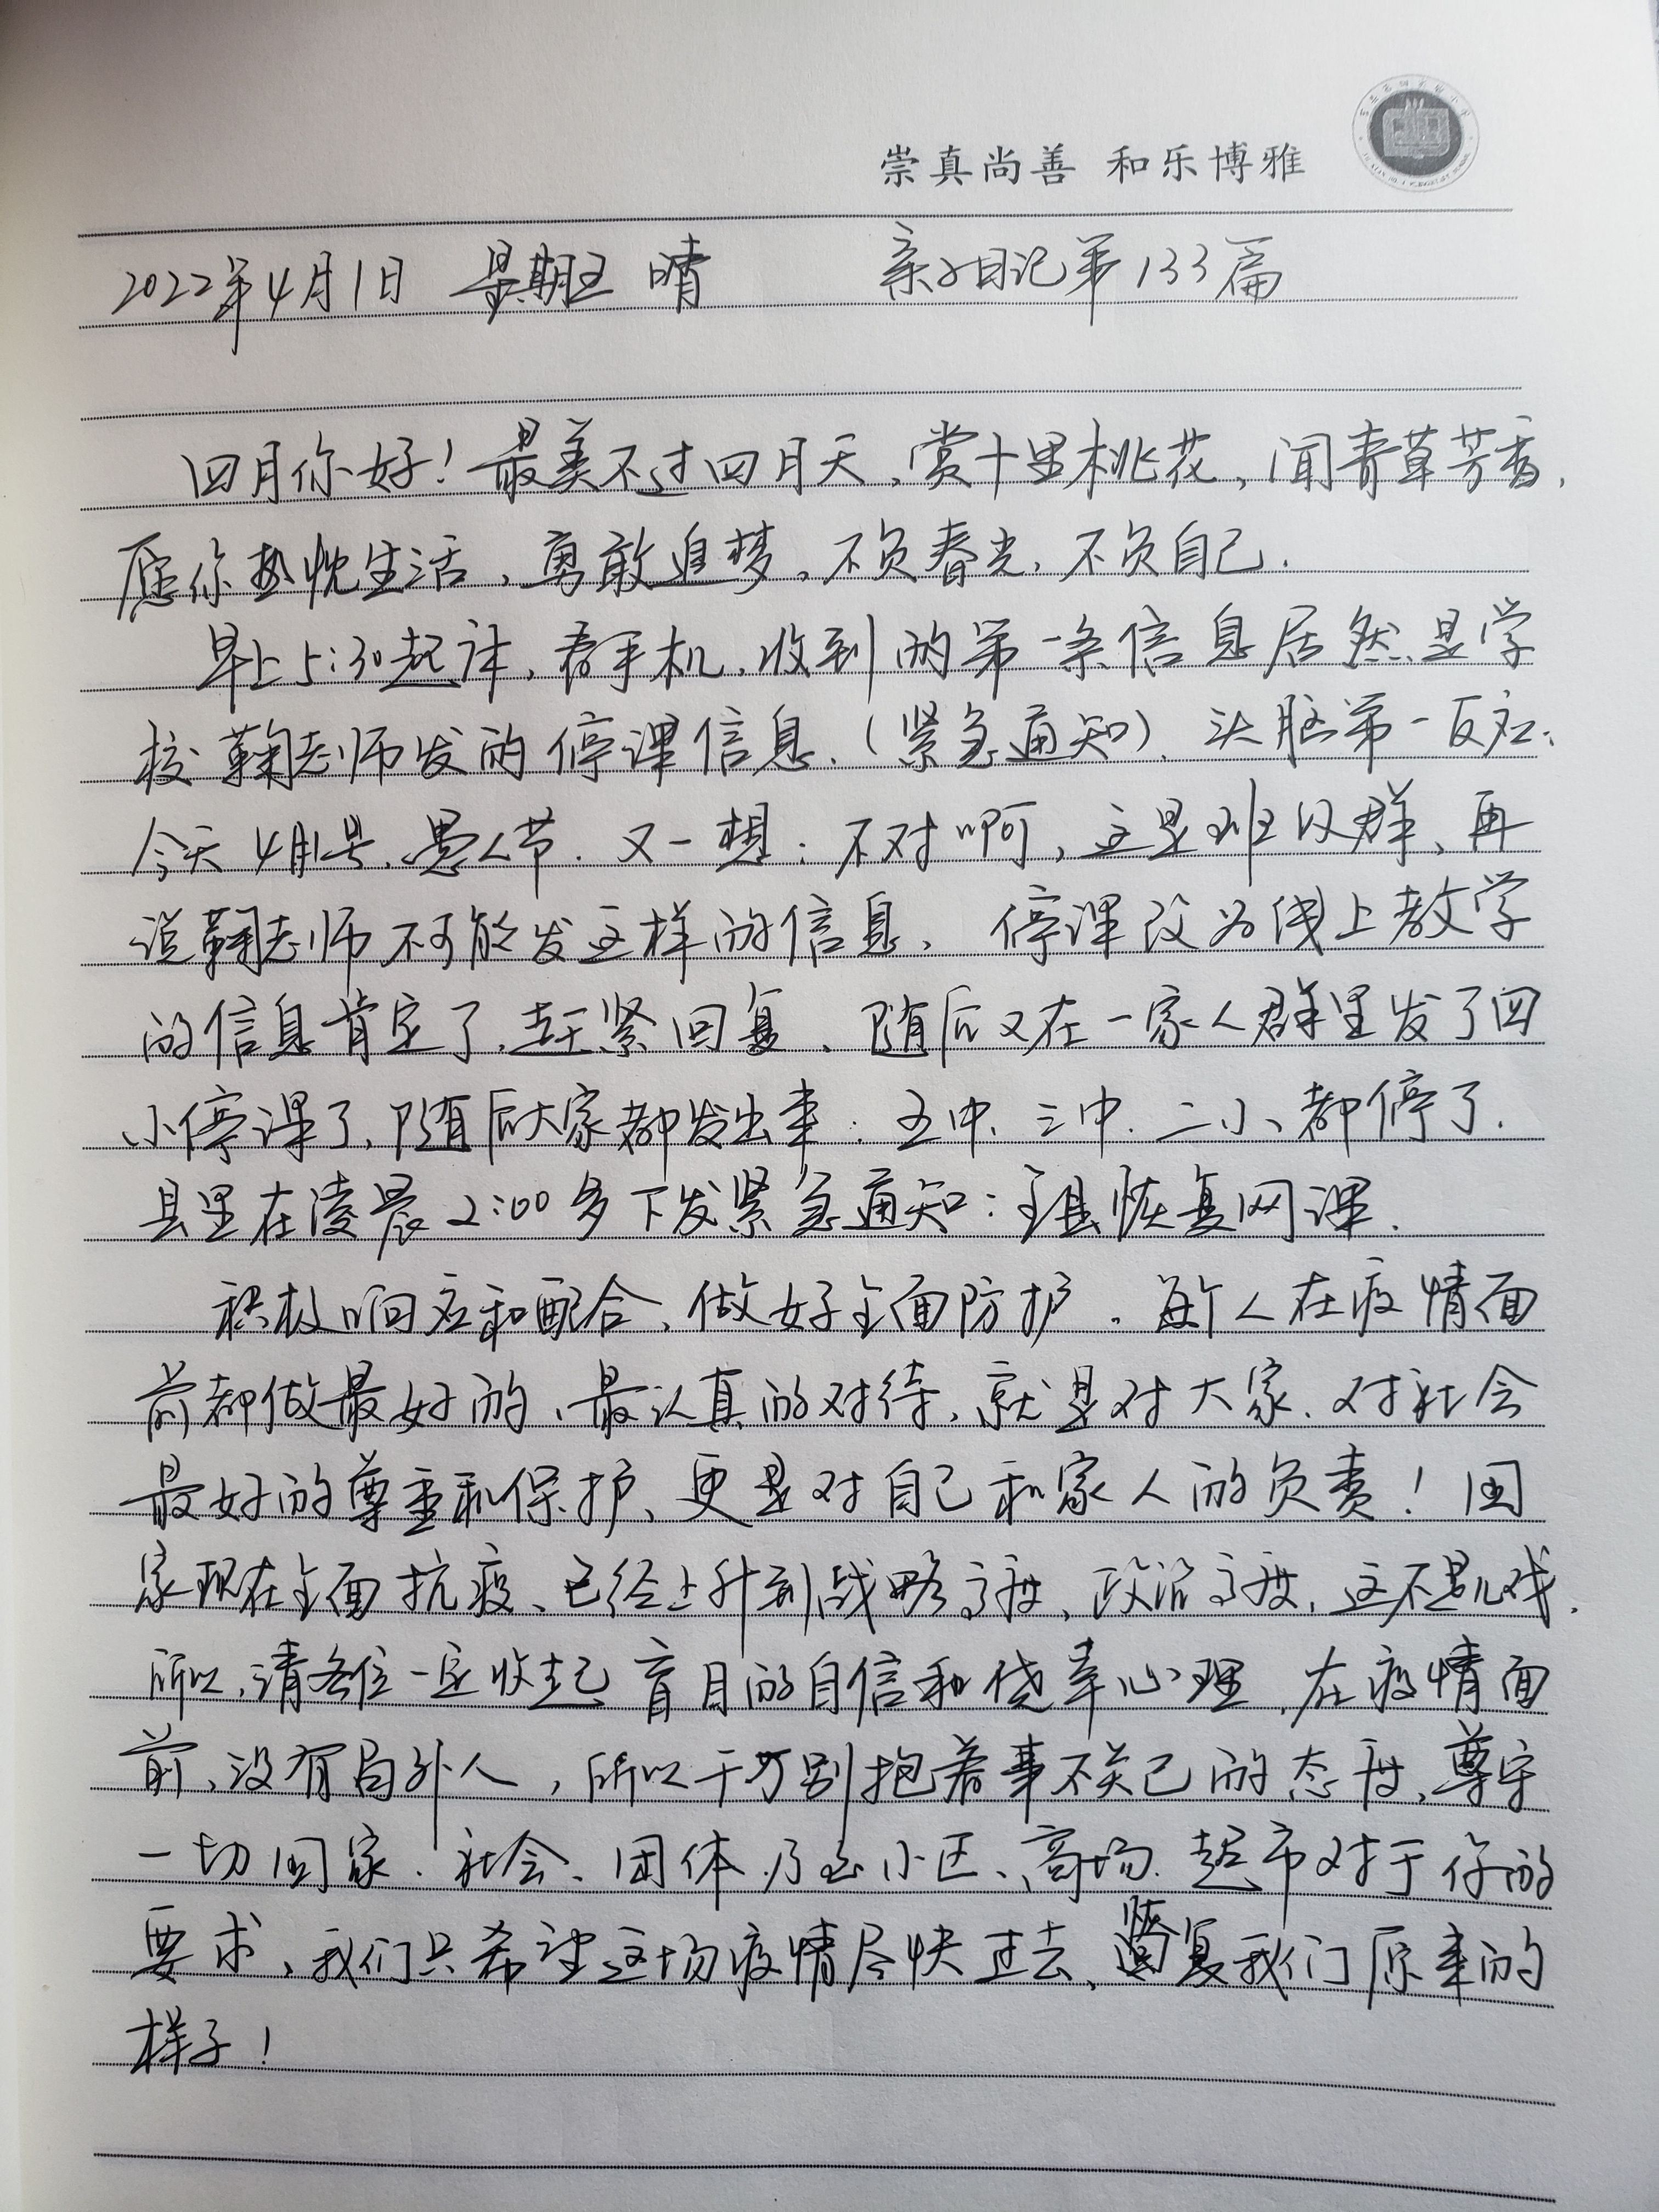 崇真尚善 和乐博雅
2022年4月1日 星期五 晴 亲子日记第133篇
四月你好！最美不过四月天，赏十里桃花，闻青草芳香，
愿你热忱生活，勇敢追梦，不负春光，不负自己.
早上5:30起床，看手机，收到的第一条信息居然是学
校鞠老师发的停课信息.（紧急通知）.头脑第一反应：
今天4月1号，愚人节.又一想：不对啊，这是班级群，再
说鞠老师不可能发这样的信息、停课改为线上教学
的信息肯定了，赶紧回复、随后又在一家人群里发了四
小停课了，随后大家都发出来：五中、三中、二小、都停了.
县里在凌晨2:00多下发紧急通知：全县恢复网课.
积极响应和配合、做好全面防护。每个人在疫情面
前都做最好的、最认真的对待，就是对大家、对社会
最好的尊重和保护、更是对自己和家人的负责！国
家现在全面抗疫、已经上升到战略高度、政治高度，这不是儿戏.
所以，请各位一定收起盲目的自信和侥幸心理，在疫情面
前，没有局外人，所以千万别抱着事不关己的态度，尊守
一切国家、社会、团体、乃至小区、商场、超市对于你的
要求、我们只希望这场疫情尽快过去、复我们原来的
样子！